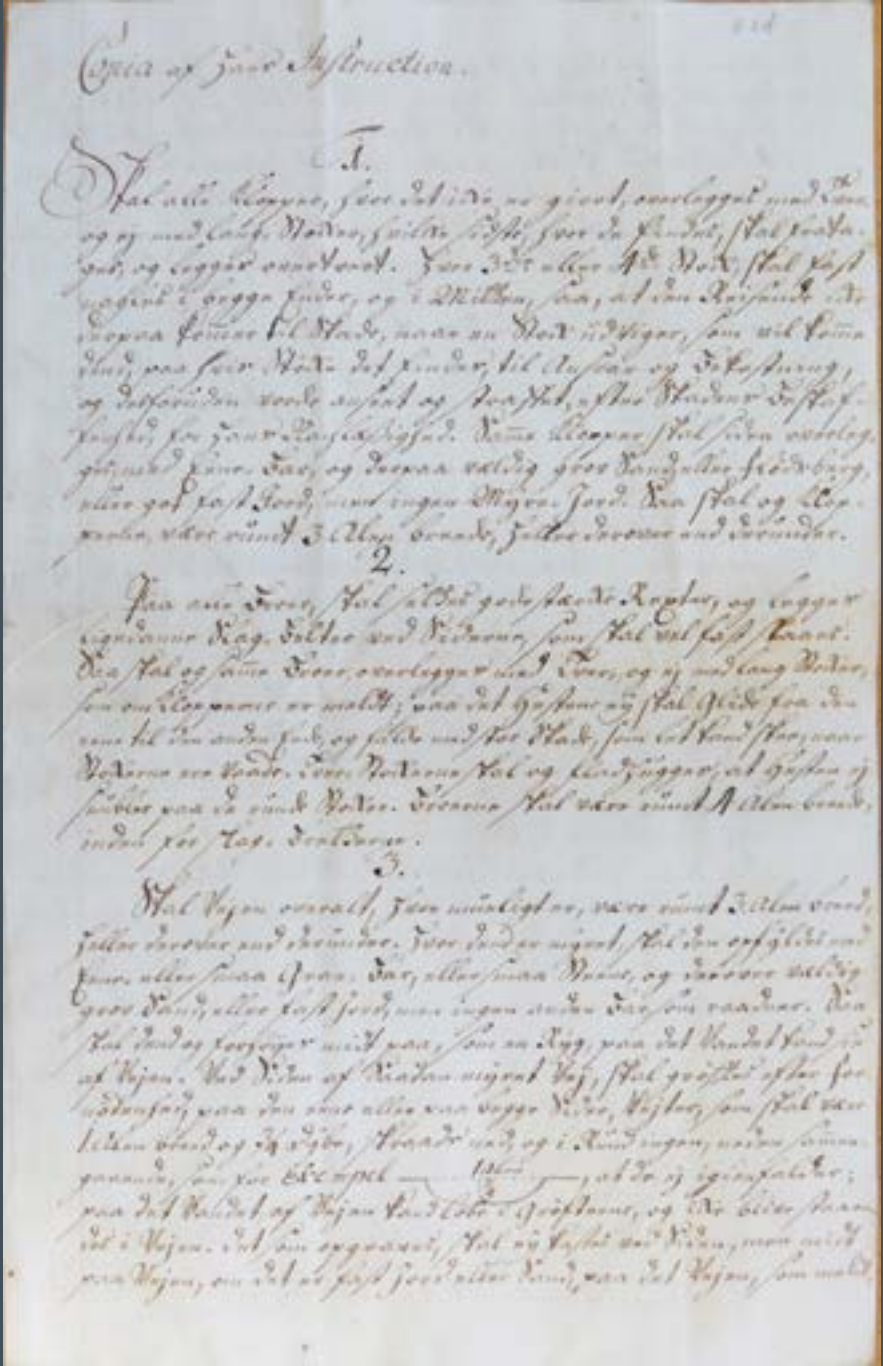 Copia af hans Instruction.
1.
Skal alle Klopper, hvor det ikke er giort, overlegges med Tver
og ej med lang Stokker, hvilke sidste, hvor de findes, skal
og legges overtvert. Hver 3de eller 4de Stok, skal fast
nagles i begge Ender, og i Midten, saa, at den Reisende ikke
derpaa kommer til Skade, naar en Stok udviger, som vil komme
dend, paa hvis Støkke det findes, til Ansvar og Bekostning,
og desforuden vorde anseet og straffet, efter Skadens Beskaf-
fenhed, for hans Efterladenhed. Samme Klopper skal siden overleg-
ges, med Ener-Bar, og derpaa veldig grov Sand, eller
eller got fast Jord, men ingen Myre-Jord. Saa skal og Klop-
perne være rundt 3 Alen breede, heller derover end derunder.
2.
Paa alle Broer, skal holdes gode stærke og legges
ligedanne Slag-Belter ved Siderne, som skal vel fast
Saa skal og samme Broer overlegges med Tver, og ej med lang Stokker,
som om Klopperne er meldt; paa det Hestene ej skal glide fra den
eene til den anden Ende, og falde med stor Skade, som let kand skee, naar
Stokkerne ere vaade. Tver-Stokkerne skal og fladhugges, at Hesten ej
snubler paa de runde Stokker. Broerne skal være rundt 4 Alen breede,
inden for Slag-
3.
Skal Vejen overalt, hvor mueligt er, være rundt 3 Alen breed,
heller derover end derunder. Hvor dend er myret, skal den opfyldes med
Ener- eller smaa Gran-Bar, eller smaa Steene, og derover veldig
grov Sand, eller fast Jord, men ingen anden Bar som raadner. Saa
skal dend og forhøyes midt paa, som en Ryg, paa det Vandet kand
af Vejen. Ved Siden af Saadan myret Vej, skal grøftes efter for-
nødenhed, paa den eene eller paa begge Sider, Vejter, som skal være
1 Alen breed og 3/4 dybe, skraade ned, og i Rundingen, neden samme-
gaaende, som for Exempel 1 Alen, at de ej igienfalder;
paa det Vandet af Vejen kand løbe i Grøfterne, og ikke blive staaen-
des i Vejen. Det som opgraves, skal ej kastes ved Siden, men midt
paa Vejen, om det er fast Jord eller Sand, paa det Vejen, som meldt,